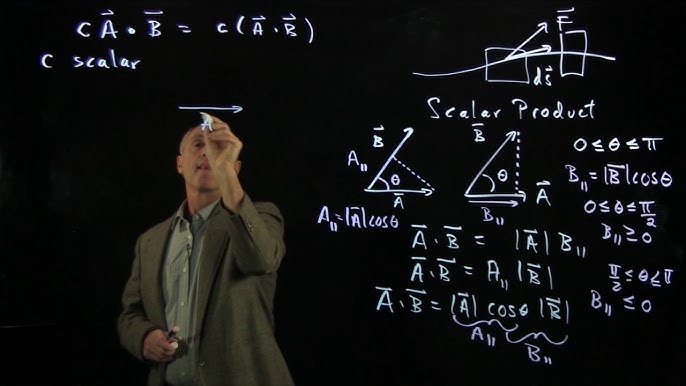 c A⃗ · B⃗ = c(A⃗ · B⃗)
c scalar
A
F⃗
ds⃗
Scalar Product
B⃗
A∥
θ
A⃗
A∥ = |A⃗| cosθ
B⃗
θ
A⃗
B∥
0 ≤ θ ≤ π
B∥ = |B⃗| cosθ
0 ≤ θ ≤ π/2
B∥ ≥ 0
π/2 ≤ θ ≤ π
B∥ ≤ 0
A⃗ · B⃗ = |A⃗| B∥
A⃗ · B⃗ = A∥ |B⃗|
A⃗ · B⃗ = |A⃗| cosθ |B⃗|
A∥ B∥